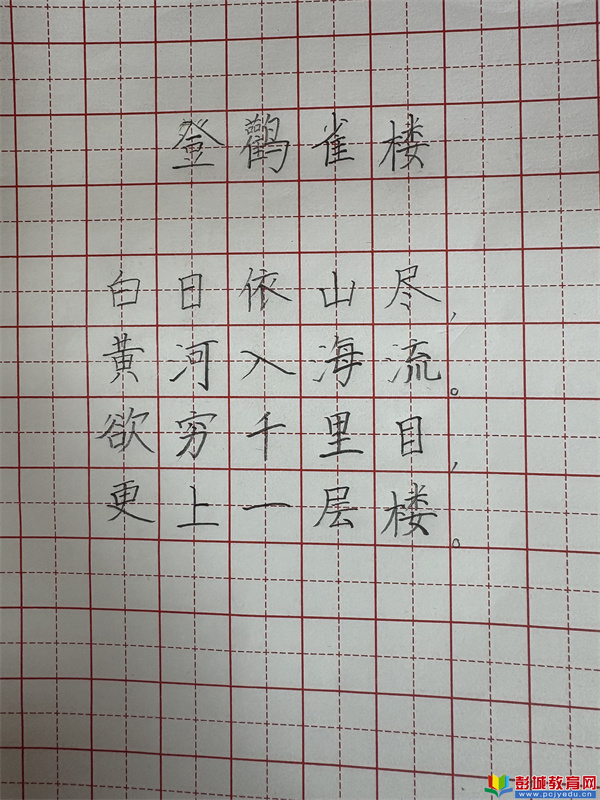 登鸛雀楼
白日依山尽,
黄河入海流。
欲穷千里目,
更上一层楼。
彭城教育网
www.pcjyedu.cn